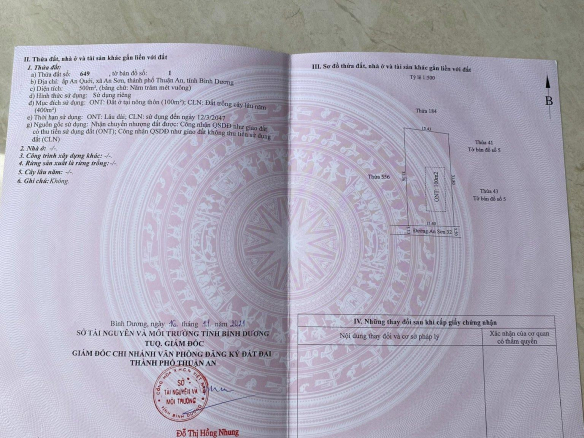 II. Thửa đất, nhà ở và tài sản khác gắn liền với đất
1. Thửa đất:
a) Thửa đất số: 649 , tờ bản đồ số: 1
b) Địa chỉ: ấp An Quới, xã An Sơn, thành phố Thuận An, tỉnh Bình Dương
c) Diện tích: 500m², (bằng chữ: Năm trăm mét vuông)
d) Hình thức sử dụng: Sử dụng riêng
đ) Mục đích sử dụng: ONT: Đất ở tại nông thôn (100m²); CLN: Đất trồng cây lâu năm
(400m²)
e) Thời hạn sử dụng: ONT: Lâu dài; CLN: sử dụng đến ngày 12/3/2047
g) Nguồn gốc sử dụng: Nhận chuyển nhượng đất được: Công nhận QSDĐ như giao đất
có thu tiền sử dụng đất (ONT); Công nhận QSDĐ như giao đất không thu tiền sử dụng
đất (CLN)
2. Nhà ở: -/-.
3. Công trình xây dựng khác: -/-.
4. Rừng sản xuất là rừng trồng: -/-.
5. Cây lâu năm: -/-.
6. Ghi chú: Không.
Bình Dương, ngày tháng 11
SỞ TÀI NGUYÊN VÀ MÔI TRƯỜNG TỈNH BÌNH DƯƠNG
TUQ. GIÁM ĐỐC
GIÁM ĐỐC CHI NHÁNH VĂN PHÒNG ĐĂNG KÝ ĐẤT ĐAI
THÀNH PHỐ THUẬN AN
SỞ
TÀI NGUYÊN VÀ
MÔI TRƯỜNG
TỈNH BÌNH DƯƠNG
Đỗ Thị Hồng Nhung
III. Sơ đồ thửa đất, nhà ở và tài sản khác gắn liền với đất
Tỷ lệ 1:500
B
Thửa 184
Thửa 41
Tờ bản đồ số 5
Thửa 856
ONT: 100m2
Thửa 41
Tờ bản đồ số 5
Đường An Sơn 52
IV. Những thay đổi sau khi cấp giấy chứng nhận
Nội dung thay đổi và cơ sở pháp lý
Xác nhận của cơ quan
có thẩm quyền